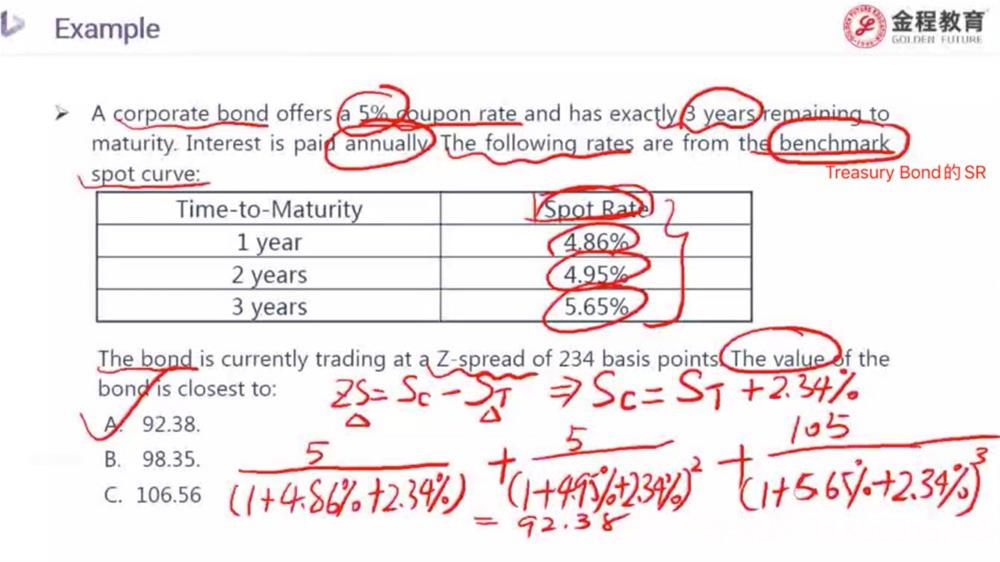 Example
金程教育
GOLDEN FUTURE
➤ A corporate bond offers a 5% coupon rate and has exactly 3 years remaining to
maturity. Interest is paid annually. The following rates are from the benchmark
spot curve:
Treasury Bond的SR
Time-to-Maturity Spot Rate
1 year 4.86%
2 years 4.95%
3 years 5.65%
The bond is currently trading at a Z-spread of 234 basis points. The value of the
bond is closest to:
ZS = Sc - ST ⇒ Sc = ST + 2.34%
A. 92.38.
B. 98.35.
C. 106.56
5/(1+4.86%+2.34%) + 5/(1+4.95%+2.34%)² + 105/(1+5.65%+2.34%)³
= 92.38